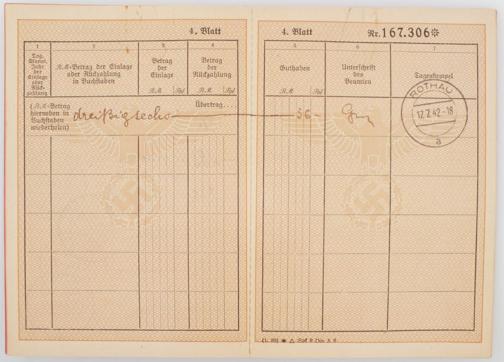 4. Blatt
1 2 3 4
Tag, Monat, Jahr der Einlage oder Rückzahlung
R.M-Betrag der Einlage oder Rückzahlung in Buchstaben
Betrag der Einlage
Betrag der Rückzahlung
R.M. Rpf R.M. Rpf
(R.M-Betrag hierneben in Buchstaben wiederholen)
Übertrag....
dreißigsechs
4. Blatt Nr. 167.306*
5 6 7
Guthaben
Unterschrift des Beamten
Tagesstempel
R.M. Rpf
36-
ROTHAU
17.7.42-18
a